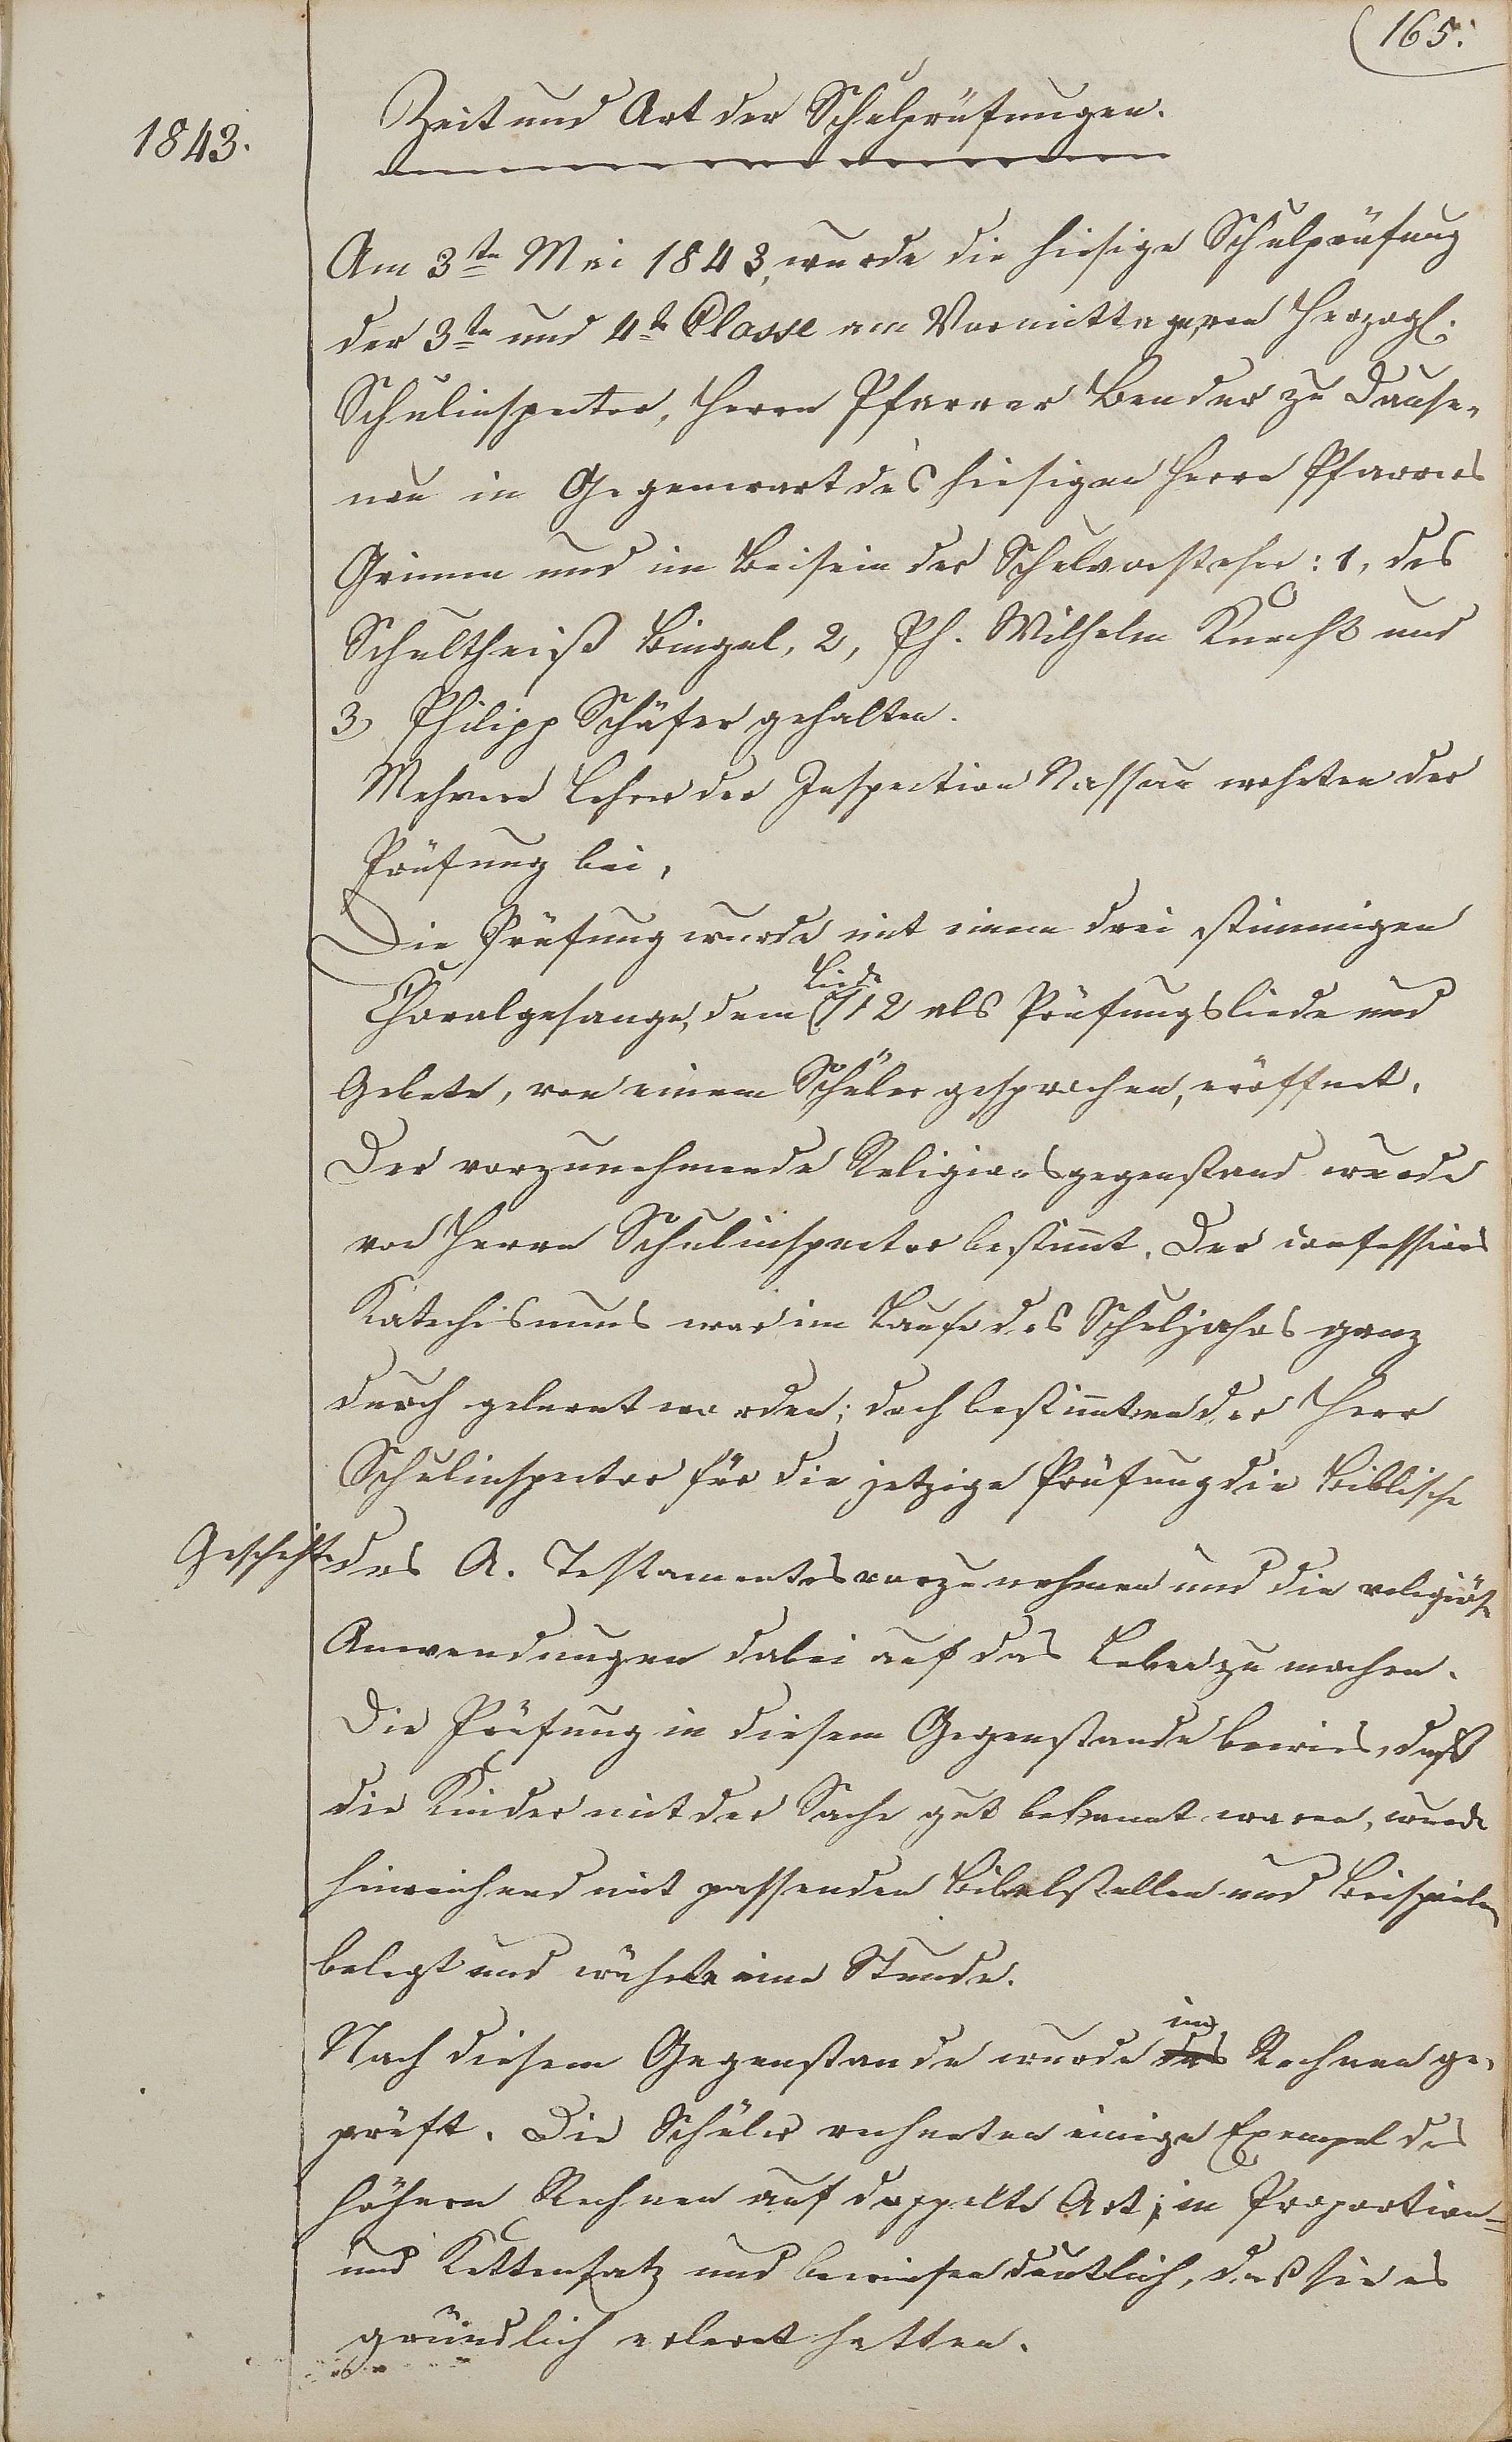 165.
1843.
Zeit und Art der Schulprüfungen.
Am 3ten Mai 1843, wurde die hiesige Schulprüfung
der 3ten und 4te Classe am Vormittage, von Herzogl.
Schulinspector, Herrn Pfarrer Bender zu Dause-
nau in Gegenwart des hiesigen Herrn Pfarrers
Grimm und im Beisein der Schulvorsteher: 1, des
Schultheiß Bingel, 2, Ph. Wilhelm Knecht und
3, Philipp Schäfer gehalten.
Mehrere Lehrer der Inspection Nassau wohnten der
Prüfung bei.
Die Prüfung wurde mit einem drei stimmigen
Choralgesange, dem Liede 712 als Prüfungsliede und
Gebete, von einem Schüler gesprochen, eröffnet.
Der vorzunehmende Religionsgegenstand wurde
von Herrn Schulinspector bestimmt. Der confessions
Katechismus war im Laufe des Schuljahrs ganz
durch gelernt worden; doch bestimmte der Herr
Schulinspector für die jetzige Prüfung die Biblische
Geschichte des A. Testamentes vorzunehmen und die religiöse
Anwendungen dabei auf das Leben zu machen.
Die Prüfung in diesem Gegenstande bewies, daß
die Kinder mit der Sache gut bekannt waren, wurde
hinreichend mit passenden Bibelstellen und Beispielen
belegt und währte eine Stunde.
Nach diesem Gegenstande wurde im das Rechnen ge-
prüft. Die Schüler rechneten einige Exempel des
höhern Rechnen auf doppelte Art; in Proportion-
und Kettensatz und bewiesen deutlich, daß sie es
gründlich erlernt hatten.